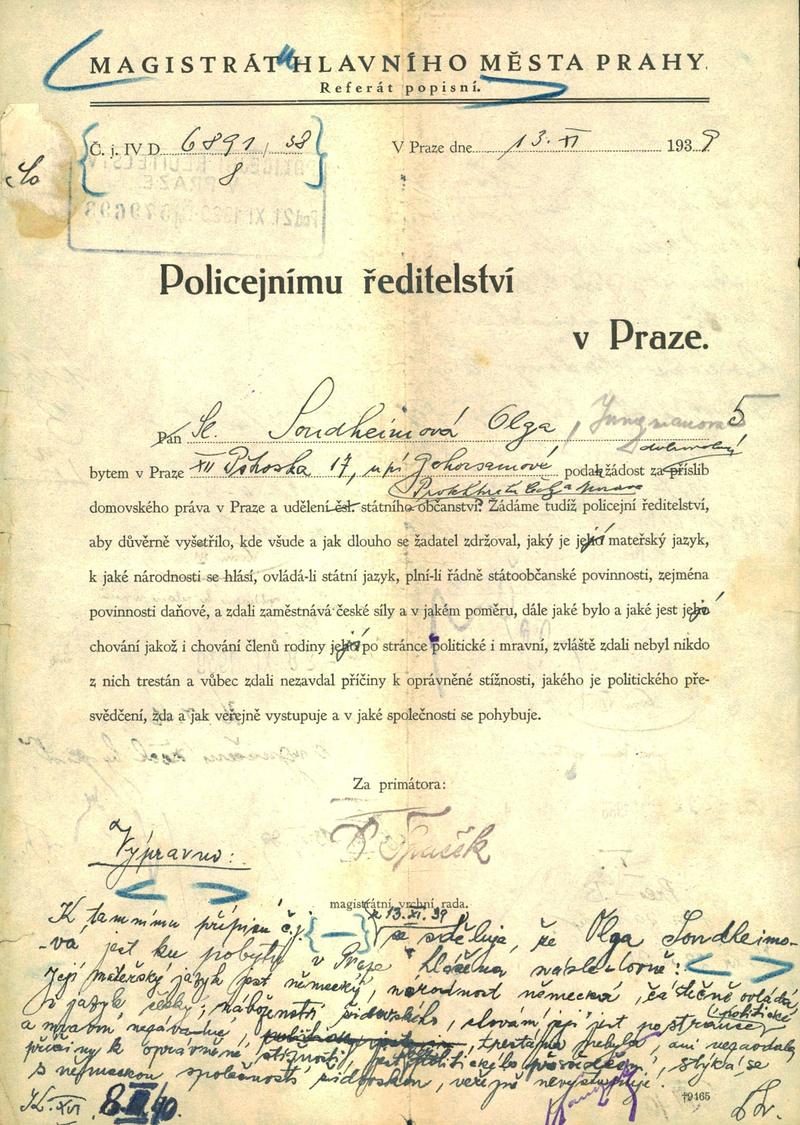 MAGISTRÁT HLAVNÍHO MĚSTA PRAHY.
Referát popisní.
Č. j. IV D 6891/38
8
V Praze dne 13. XI 1939
Policejnímu ředitelství
v Praze.
Pán Sl. Sondheimová Olga, Jungmanova 5
bytem v Praze XII 17, u pí podal žádost za příslib
domovského práva v Praze a udělení čsl. státního občanství. Žádáme tudíž policejní ředitelství,
aby důvěrně vyšetřilo, kde všude a jak dlouho se žadatel zdržoval, jaký je její mateřský jazyk,
k jaké národnosti se hlásí, ovládá-li státní jazyk, plní-li řádně státoobčanské povinnosti, zejména
povinnosti daňové, a zdali zaměstnává české síly a v jakém poměru, dále jaké bylo a jaké jest její
chování jakož i chování členů rodiny její po stránce politické i mravní, zvláště zdali nebyl nikdo
z nich trestán a vůbec zdali nezavdal příčiny k oprávněné stížnosti, jakého je politického pře-
svědčení, zda a jak veřejně vystupuje a v jaké společnosti se pohybuje.
Za primátora:
Výpravno:
magistrátní vrchní rada.
z 13. XI. 39
K tamnímu přípisu č.j. se sděluje, že Olga Sondheimo-
-va jest ku pobytu v Praze hlášena následovně:
Její mateřský jazyk jest německý, národnost německá, částečně ovládá
jazyk český, náboženství židovského, chování její jest po stránce politické
a mravní nezávadné, trestána nebyla, ani nezavdala
příčiny k oprávněné stížnosti, politického přesvědčení, stýká se
s německou společností židovskou, veřejně nevystupuje.
K. XVI 8. III. 40.
†9165